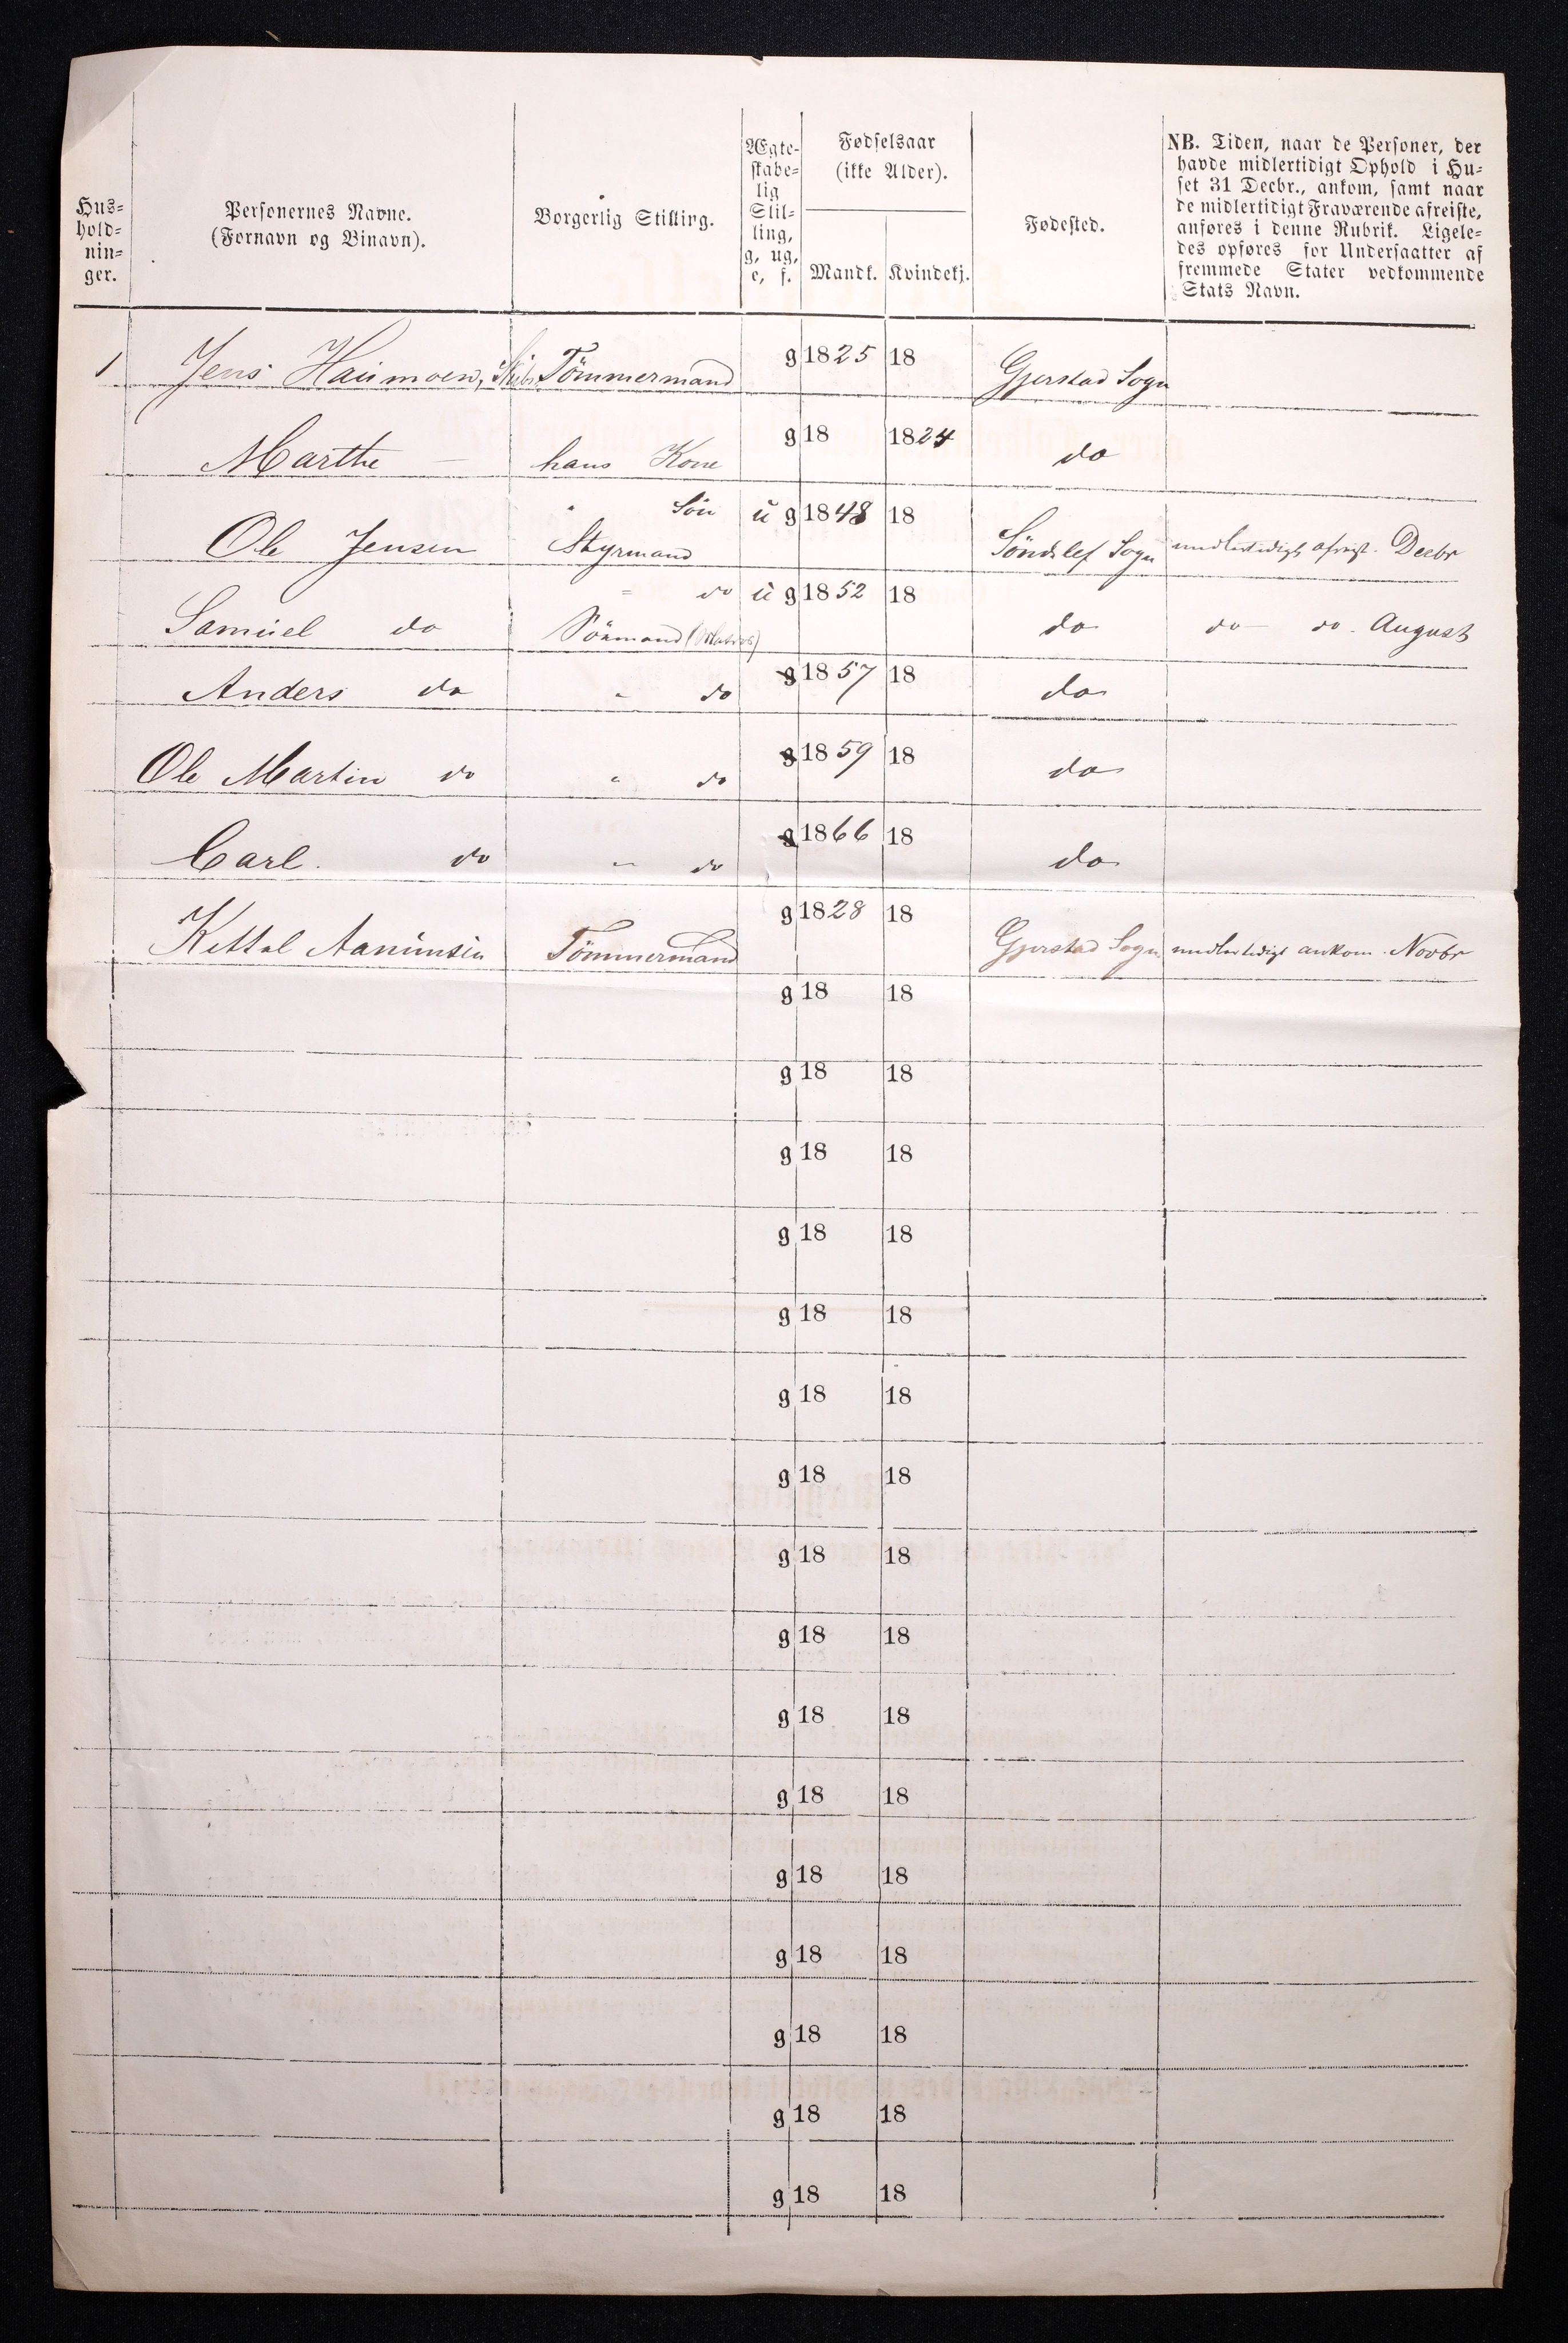 Hus-
hold-
nin-
ger.
Personernes Navne.
(Fornavn og Binavn).
Borgerlig Stilling.
Ægte-
skabe-
lig
Stil-
ling,
g, ug,
e, f.
Fødselsaar
(ikke Alder).
Mandk. Kvindekj.
Fødested.
NB. Tiden, naar de Personer, der
havde midlertidigt Ophold i Hu-
set 31 Decbr., ankom, samt naar
de midlertidigt Fraværende afreiste,
anføres i denne Rubrik. Ligele-
des opføres for Undersaatter af
fremmede Stater vedkommende
Stats Navn.
1 Jens Haumoen, Skibs Tömmermand g 1825 18 Gjerstad Sogn
Marthe — hans Kone g 18 1824 do
" Sön
Ole Jensen Styrmand u g 1848 18 Söndelef Sogn midlertidigt afreist. Decbr
" do
Samuel do Sömand (Matros) u g 1852 18 do do do. August
Anders do " do g 1857 18 do
Ole Martin do " do g 1859 18 do
Carl. do " do g 1866 18 do
Kittel Aanunsen Tömmermand g 1828 18 Gjerstad Sogn midlertidigt ankom. Novbr
g 18 18
g 18 18
g 18 18
g 18 18
g 18 18
g 18 18
g 18 18
g 18 18
g 18 18
g 18 18
g 18 18
g 18 18
g 18 18
g 18 18
g 18 18
g 18 18